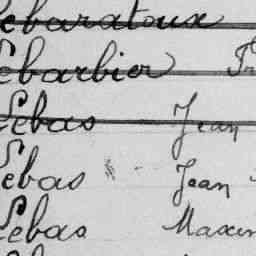 Lebaratoux
Lebarbier Fr
Lebas Jean
Lebas Jean
Lebas Maxim